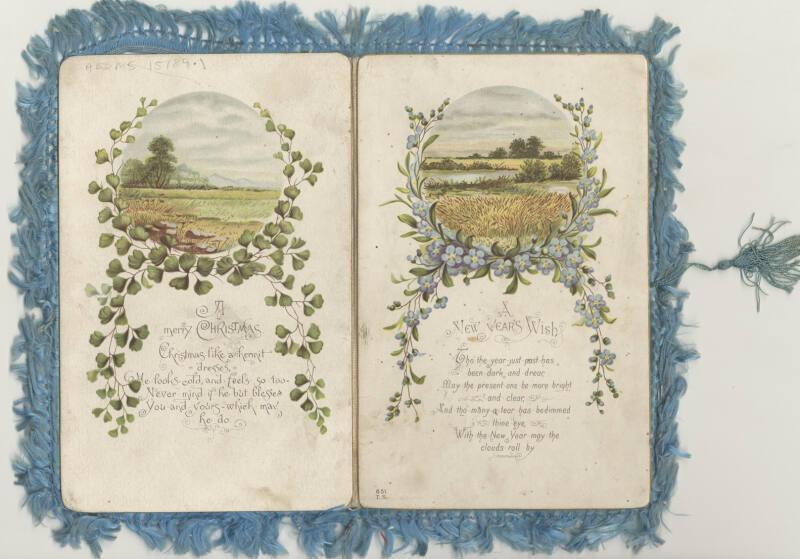 A
merry CHRISTMAS
Christmas like a hermit
dresses,
He looks cold, and feels so too-
Never mind if he but blesses
You and yours - which may
he do
A
NEW YEAR'S Wish
Tho the year just past has
been dark and drear,
May the present one be more bright
and clear,
And tho many a tear has bedimmed
thine eye,
With the New Year may the
clouds roll by
651
T.S.